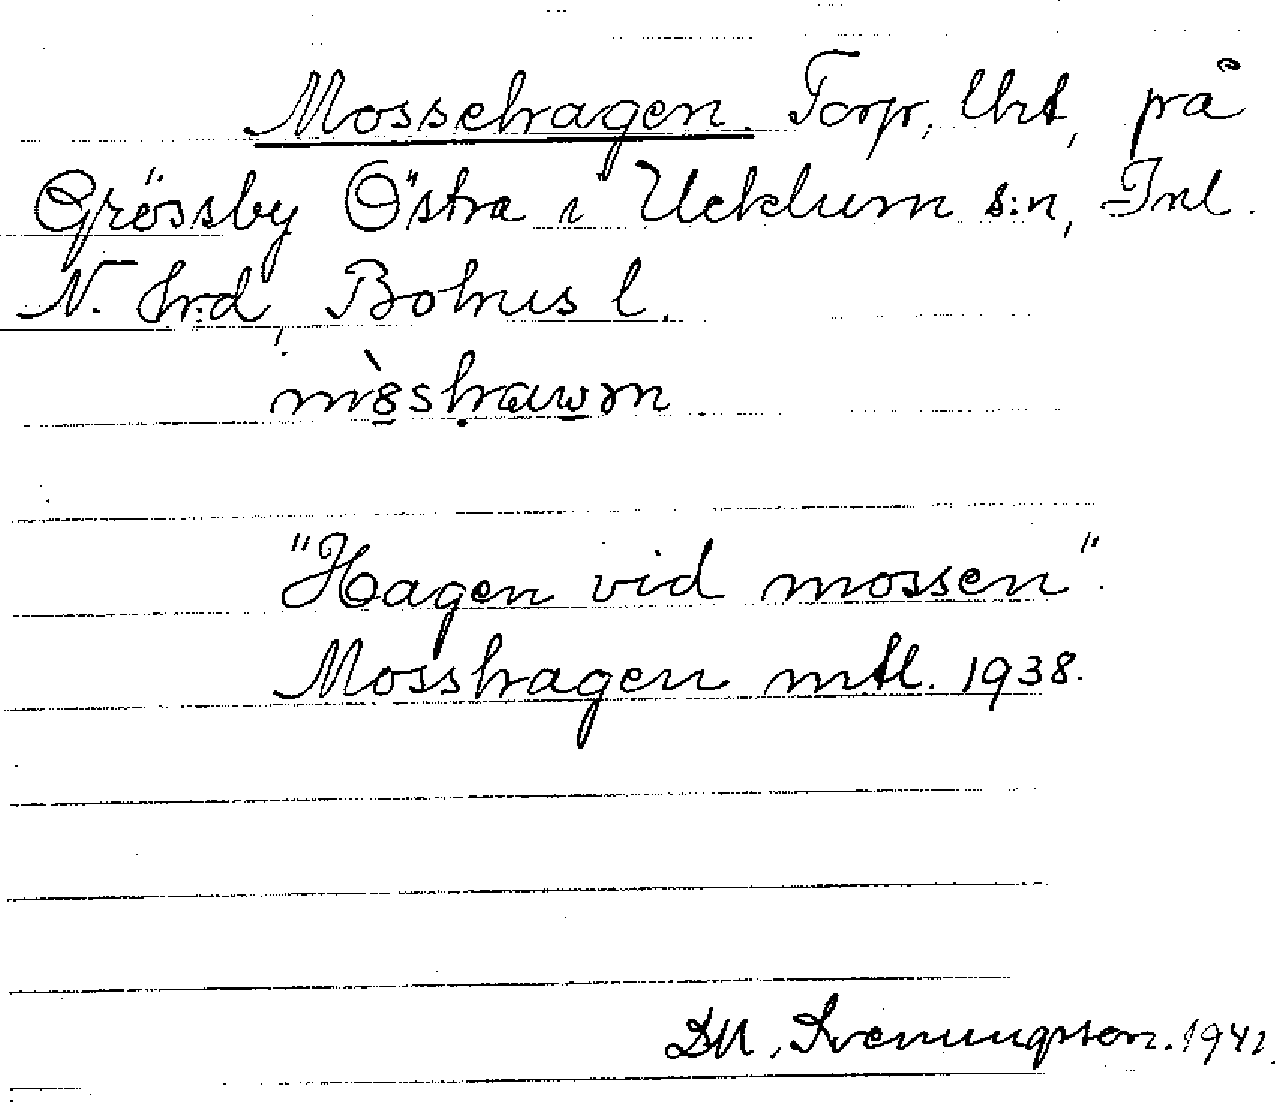 Mossehagen. Torp, Uht, på
Grössby Östra i Ucklum s:n, Inl.
N. hrd, Bohus l.
"Hagen vid mossen".
Mosshagen mtl. 1938.
D.N. Svenungsson. 1941.